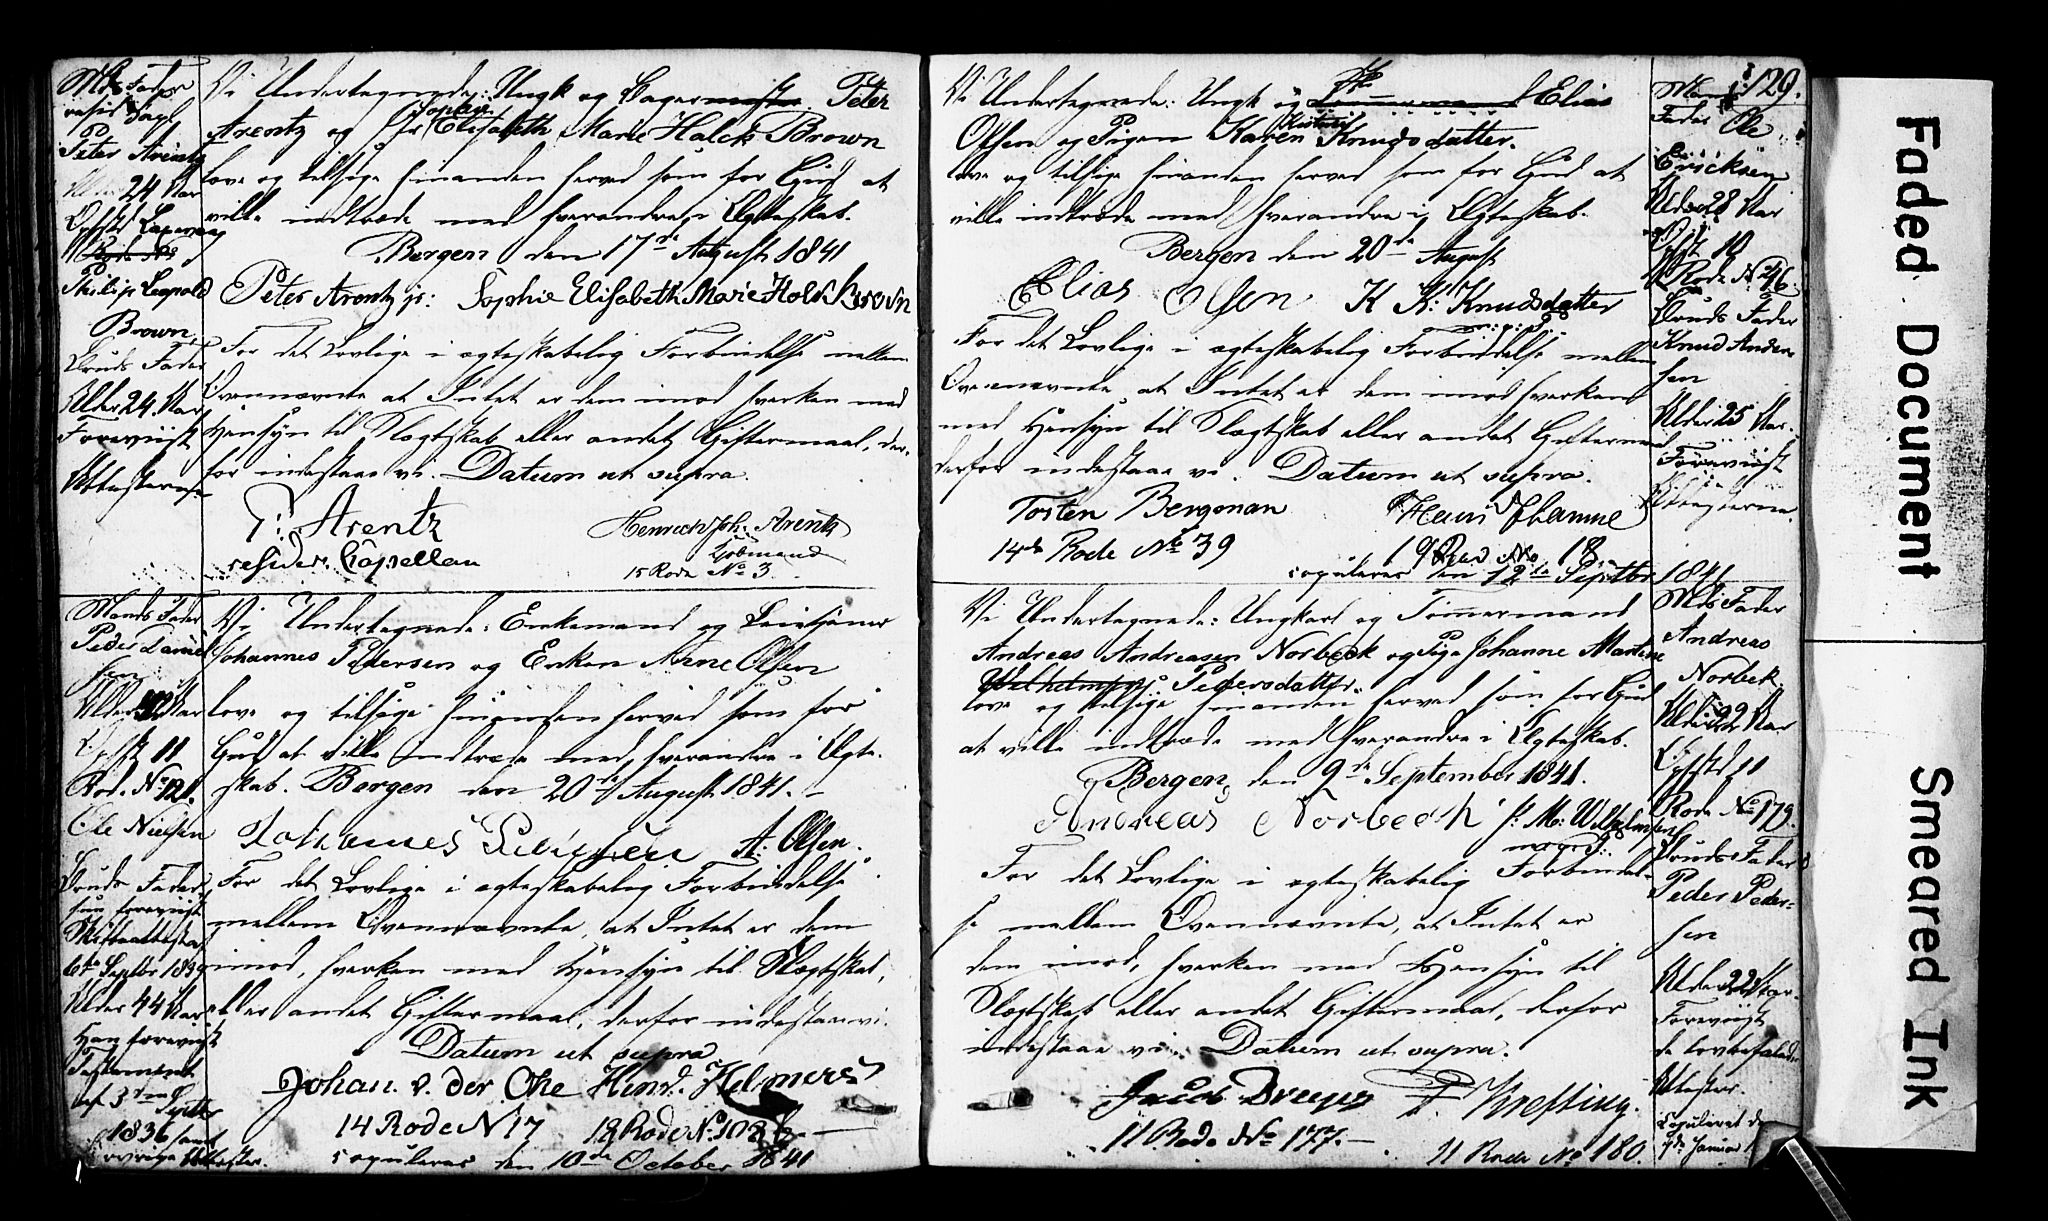 Mds Fader
resid Capl
Peter Arentz
Alder 24 Aar
Philip Leopold
Brown
Bruds Fader
Alder 24 Aar
Foreviist
Attesterne
Vi Undertegnede: Ungk og Bagermester Peter
Sophie
Arentz og Jfr Elisabeth Marie Halck Brown
love og tilsige hinanden herved som for Gud at
ville indtræde med hverandre i Ægteskab.
Bergen den 17de August 1841
Peter Arentz jr: Sophie Elisabeth Marie Holck Brown
For det Lovlige i ægteskabelig Forbindelse mellem
Ovennævnte at Intet er dem imod hverken med
Hensyn til Slægtskab eller andet Giftermaal, der-
for indestaae vi. Datum ut supra.
P: Arentz
resider. Capellan
Henrich Joh: Arentz
Kjøbmand
15 Rode No 3
Mands Fader
Peder Daniel
sen
Alder Aar
Opst 11
Rod. No 121.
Ole Nielsen
Bruds Fader
hun foreviist
Skifteattest
6te Septbr 1839
Alder 44 Aar
Han foreviist
Testament
af 3die Septbr
1836 samt
øvrige Attester.
Vi Undertegnede: Enkemand og
Johannes Pedersen og Enken Anne Olsen
love og tilsige hinanden herved som for
Gud at ville indtræde med hverandre i Ægte-
skab. Bergen den 20de August 1841.
Johannes Pedersen A: Olsen.
For det Lovlige i ægteskabelig Forbindelse
mellem Ovennævnte, at Intet er dem
imod, hverken med Hensyn til Slægtskab,
eller andet Giftermaal, derfor indestaae vi.
Datum ut supra
Johan v. der Ohe Hinr. Helmers
14 Rode N 17 18 Rode No 108
copuleres den 10de October 1841
Vi Undertegnede: Ungk og Elias
Kistine
Olsen og Pigen Karen Knudsdatter.
love og tilsige hinanden herved som for Gud at
ville indtræde med hverandre i Ægteskab.
Bergen den 20de August
Elias Olsen K K: Knudsdatter
m: p: P:
For det Lovlige i ægteskabelig Forbindelse mellem
Ovennævnte at Intet er dem imod hverken
med Hensyn til Slægtskab eller andet Giftermaal
derfor indestaae vi. Datum ut supra.
Torsten Bergman Hans
14de Rode No 39 19 Rod No 18
copuleres den 12te Septbr 1841
129.
Mands
Fader Ole
Ericksen
Alder 28 Aar
Opst 10
Rode No 46.
Bruds Fader
KnudAnder
sen
Alder 25 Aar.
Foreviist
Attesterne.
Vi Undertegnede: Ungkarl og Tømmermand
Andreas Andreasen Norbeck og Pige Johanne Martine
Wilhelmsen Pedersdatter
love og tilsige hinanden herved som for Gud
at ville indtræde med hverandre i Ægteskab.
Bergen, den 9de September 1841.
Andreas Norbeck J: M: Wilhelmsen
For det Lovlige i ægteskabelig Forbindel-
se mellem Ovennævnte, at Intet er
dem imod, hverken med Hensyn til
Slægtskab eller andet Giftermaal, derfor
indestaae vi. Datum ut supra.
Jacob Dreyer P. Krefting.
11 Rode No 177. 11 Rode No 180.
Mds Fader
Andreas
Norbek.
Alder 22 Aar
Opst 11
Rode No 179.
Bruds Fader
Peder Peder-
sen
Alder 22 Aar.
Foreviist
de lovbefalede
Attester.
Copuleret d
7de Januar
Faded Document
Smeared Ink